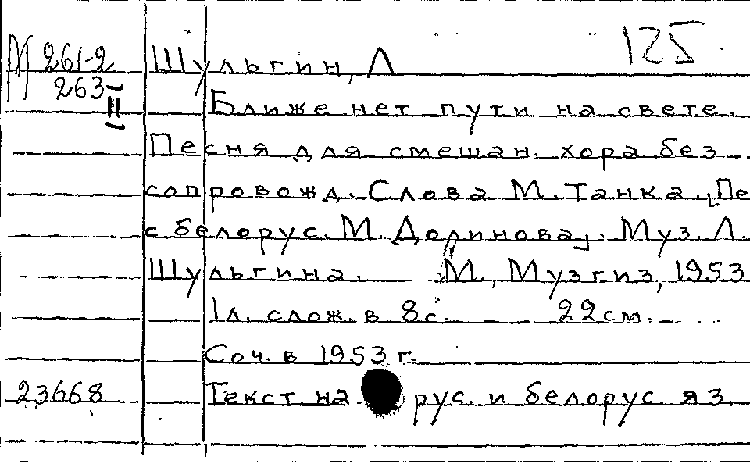 125
М 261-2
263
II
Шульгин, Л
Ближе нет пути на свете.
Песня для смешан. хора без
сопровожд. Слова М. Танка [Пе
с белорус. М. Долинова]. Муз. Л.
Шульгина. М., Музгиз, 1953
1л. слож. в 8с. 22см.
Соч. в 1953 г.
23668 Текст на рус. и белорус яз.